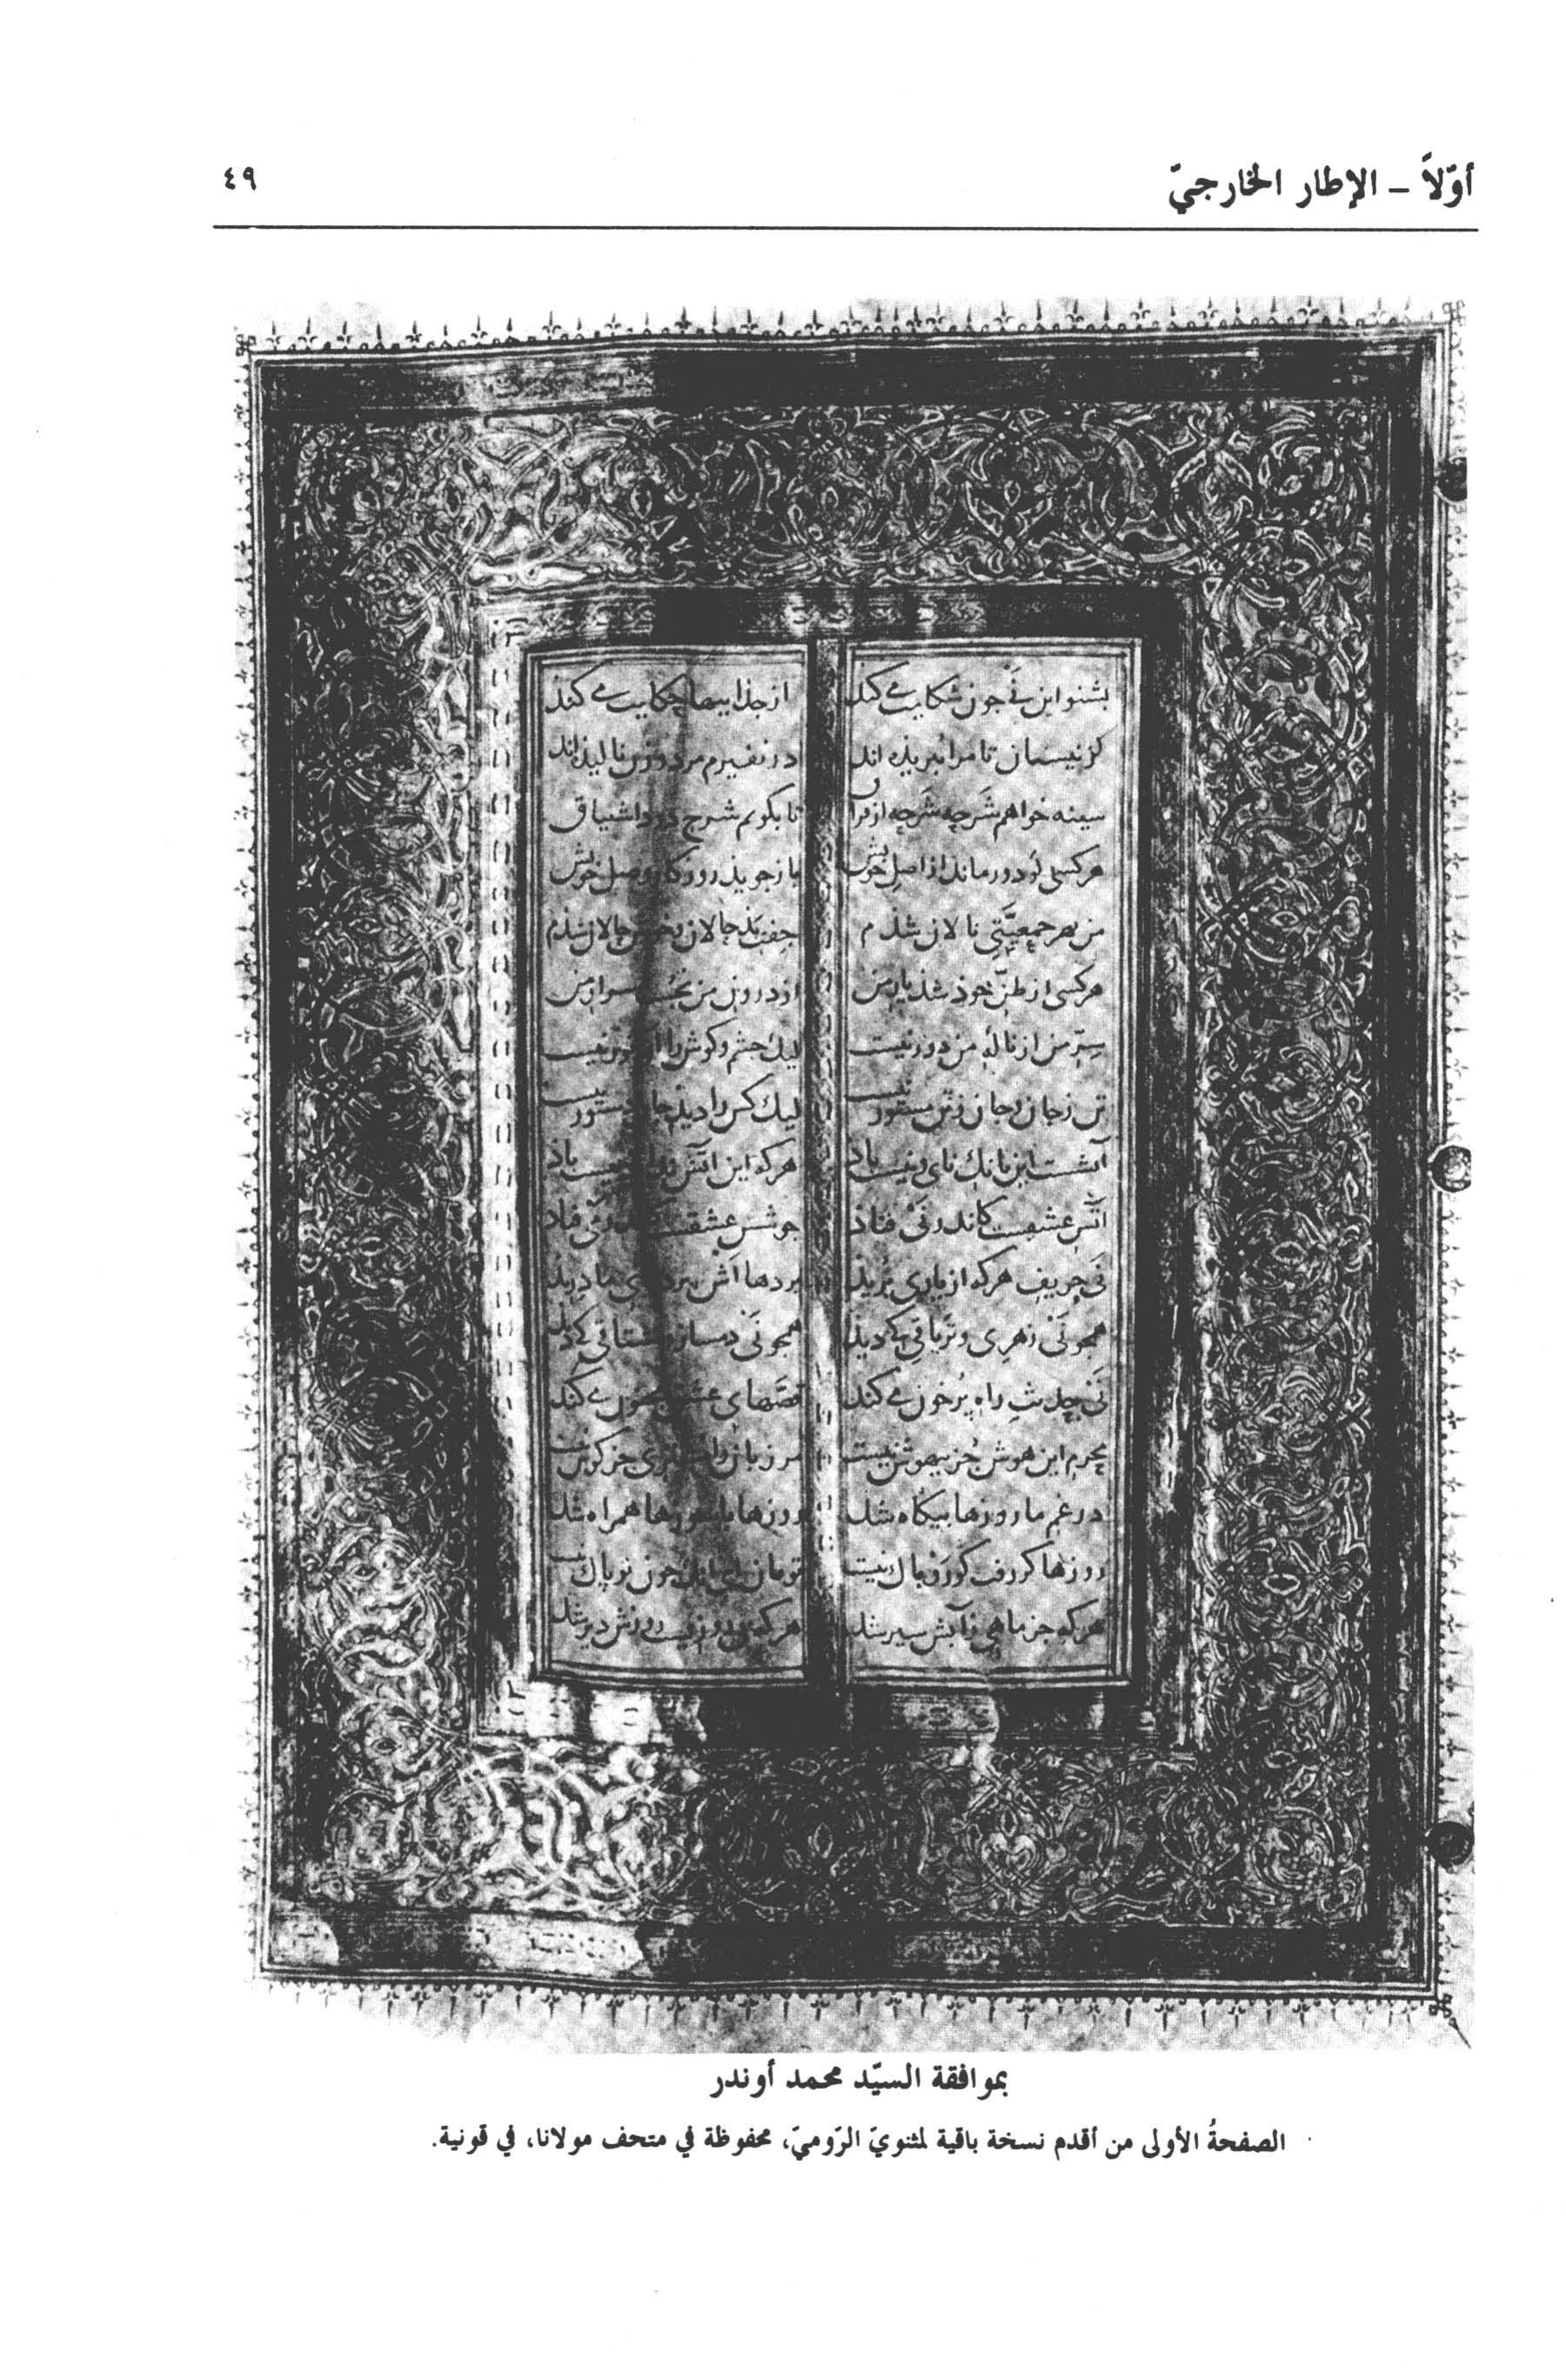 أوّلاً – الإطار الخارجيّ ٤٩
بشنو این نی جون شکایت می کند از جذاییها حکایت می کند
کز نیستان تا مرا ببریذه اند در نفیرم مرد و زن نالیذه اند
سینه خواهم شرحه شرحه از فراق تا بکویم شرح درد اشتیاق
هر کسی کو دور ماند از اصل خویش باز جویذ روزکار وصل خویش
من بهر جمعیّتی نالان شذم جفت بذحالان و خوش حالان شذم
هر کسی از ظنّ خوذ شذ یار من از درون من نجست اسرار من
سِرّ من از نالهٔ من دور نیست لیک جشم و کوش را آن نور نیست
تن ز جان و جان ز تن مستور نیست لیک کس را دیذ جان دستور نیست
آتشست این بانک نای و نیست باذ هر که این آتش نذارد نیست باذ
آتش عشقست کاندر نی فتاذ جوشش عشقست کاندر می فتاذ
نی حریف هر که از یاری بُریذ پردهااش پردهای ما دریذ
همجو نی زهری و تریاقی که دیذ همجو نی دمساز و مشتاقی که دیذ
نی حدیث راه پُر خون می کند قصّهای عشق مجنون می کند
محرم این هوش جُز بیهوش نیست مر زبان را مشتری جز کوش نیست
در غم ما روزها بیکاه شذ روزها با سوزها همراه شذ
روزها کر رفت کو رَو باک نیست تو بمان ای آنک جون تو پاک نیست
هر که جز ماهی ز آبش سیر شذ هرکه بی روزیست روزش دیر شذ
بموافقة السيّد محمد أوندر
الصفحةُ الأولى من أقدم نسخة باقية لمثنويّ الرّوميّ، محفوظة في متحف مولانا، في قونية.